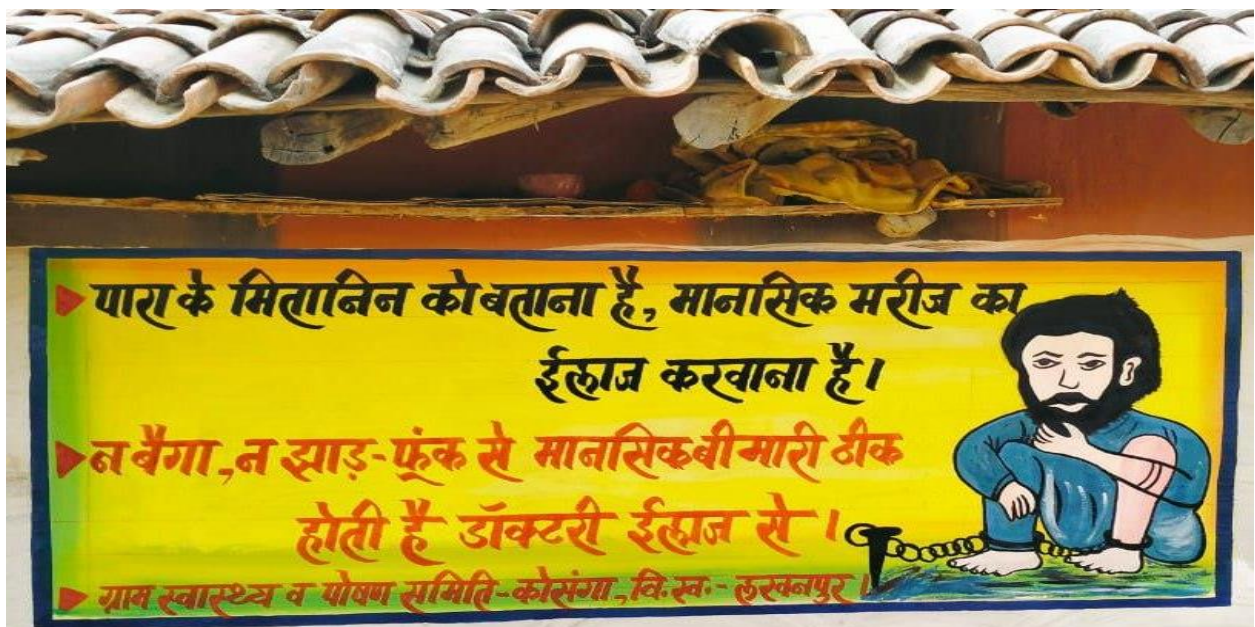 पारा के मितानिन को बताना है, मानसिक मरीज का
ईलाज करवाना है।
न बैगा, न झाड़-फूंक से मानसिक बीमारी ठीक
होती है डॉक्टरी ईलाज से।
ग्राम स्वास्थ्य व पोषण समिति-कोसंगा, वि.ख.- लखनपुर।